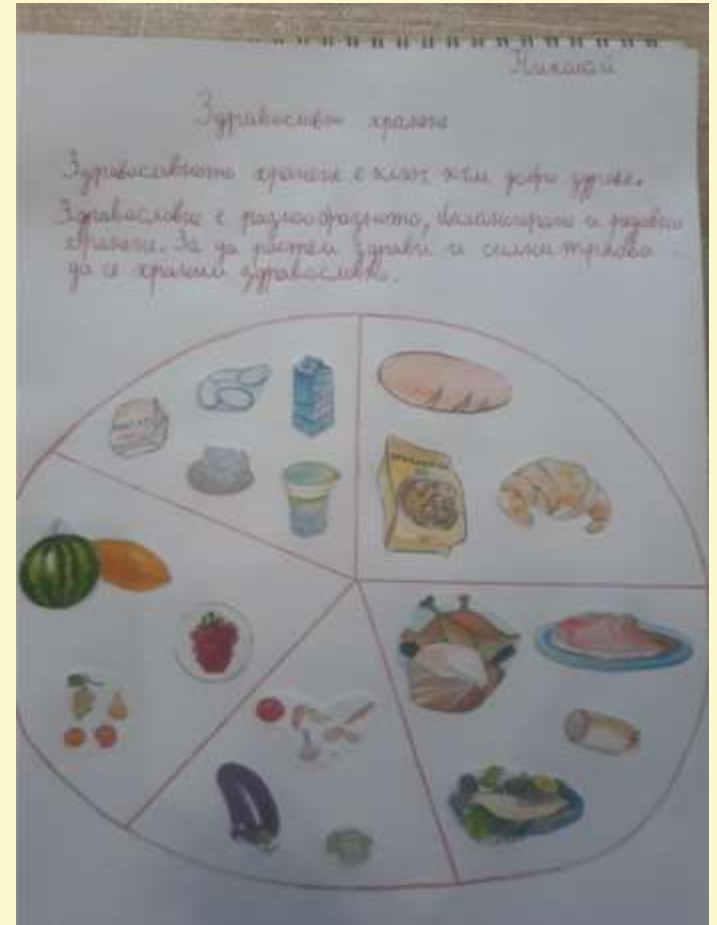 Николай
Здравословно хранене
Здравословното хранене е ключ към добро здраве.
Здравословно е разнообразното, балансирано и редовно
хранене. За да растем здрави и силни трябва
да се храним здравословно.